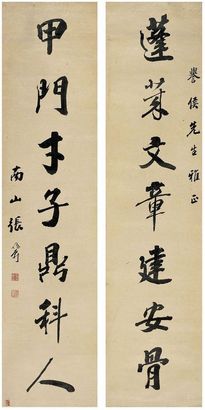 譽侯先生雅正
蓬萊文章建安骨
甲門才子鼎科人
南山張